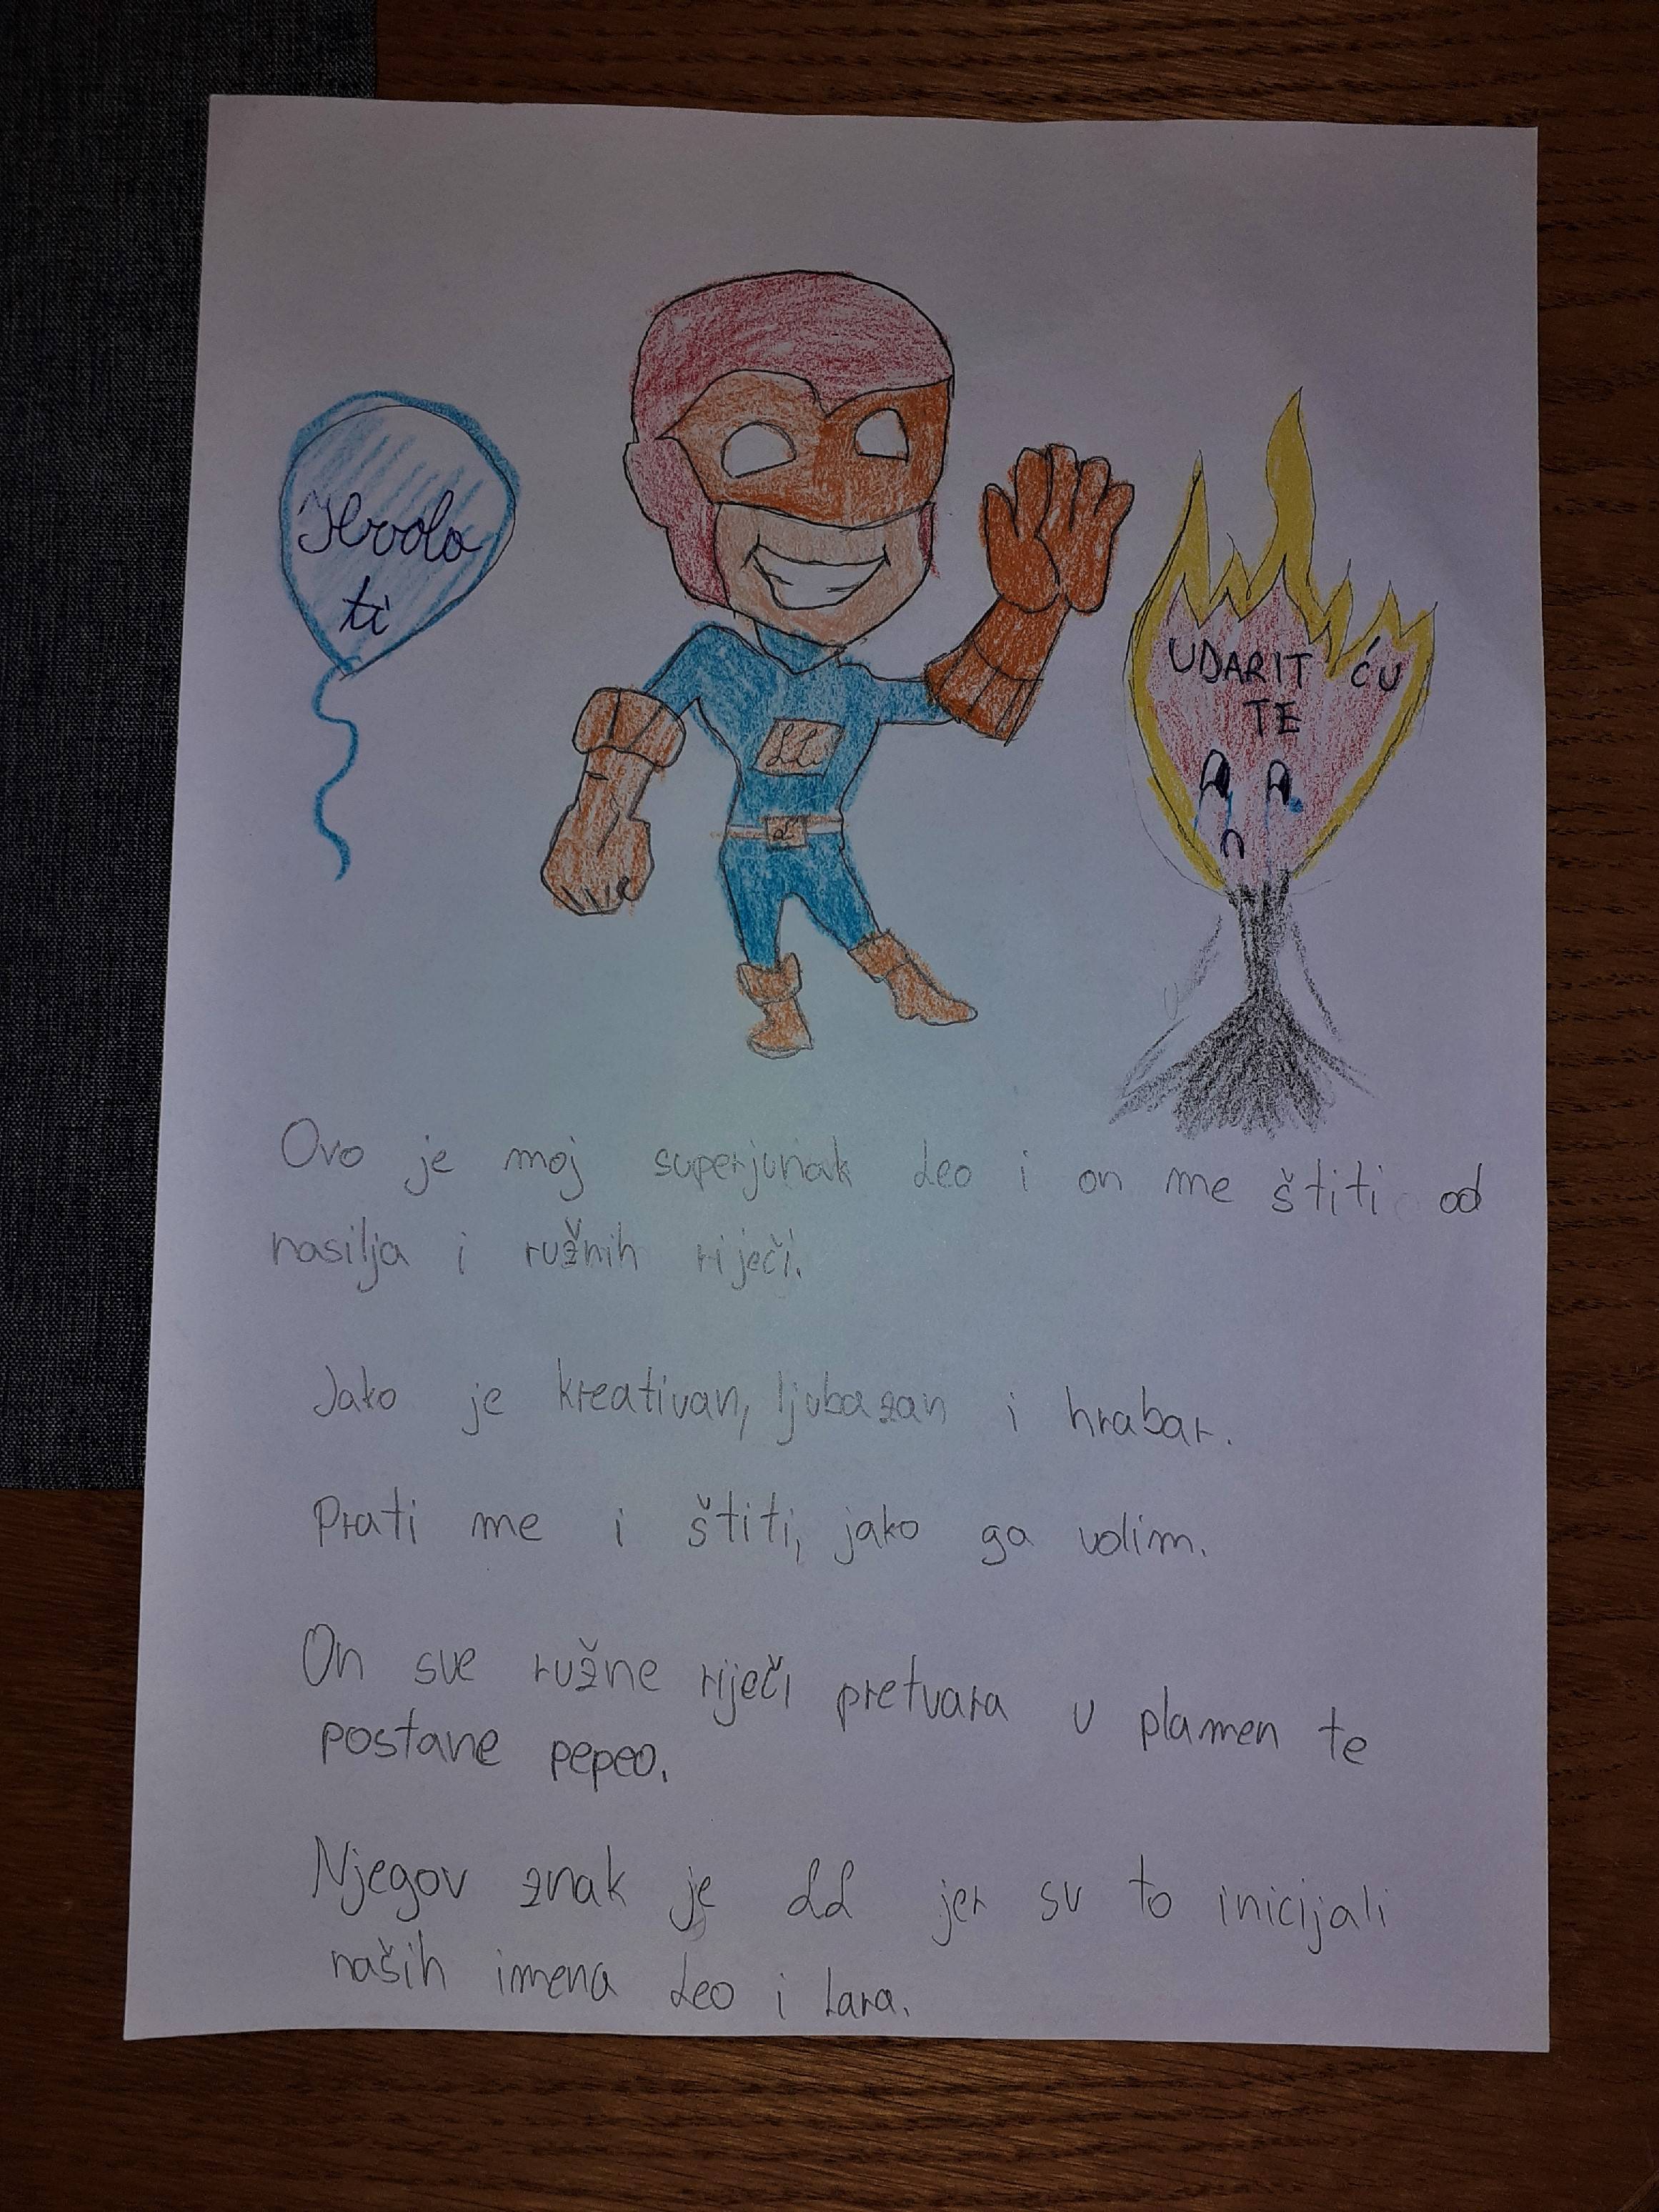 Hvala
ti
LL
L
UDARIT ĆU
TE
Ovo je moj superjunak Leo i on me štiti od
nasilja i ružnih riječi.
Jako je kreativan, ljubazan i hrabar.
Prati me i štiti, jako ga volim.
On sve ružne riječi pretvara u plamen te
postane pepeo.
Njegov znak je LL jer su to inicijali
naših imena Leo i Lara.